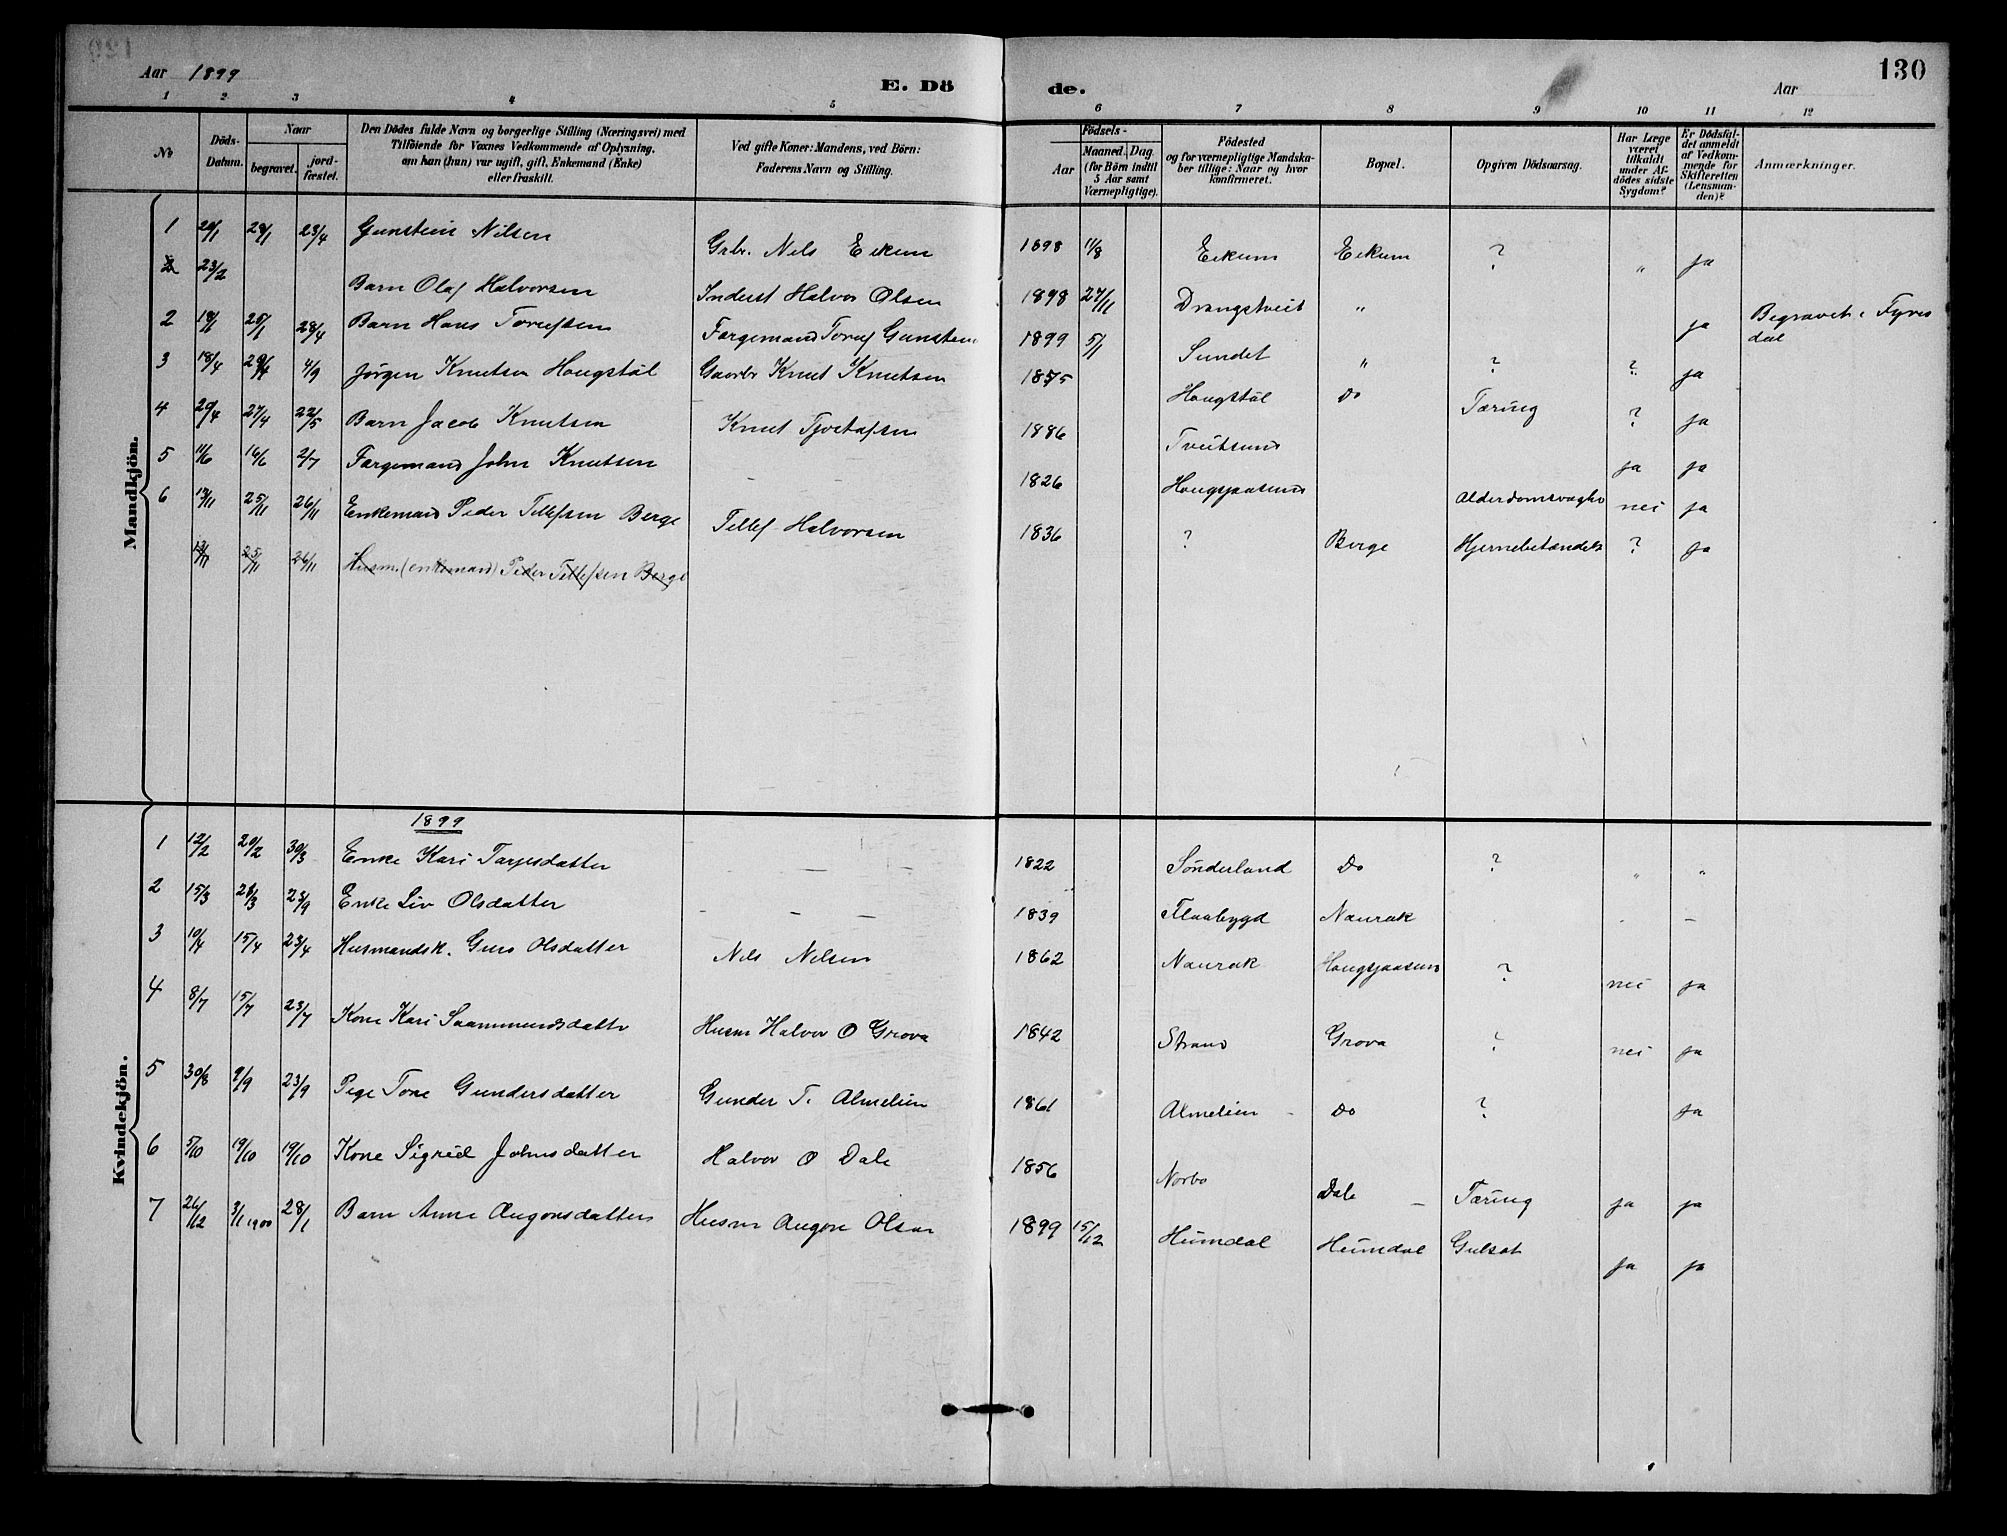 Aar 1899 E. Dö de. Aar 130
1 2 3 4 5 6 7 8 9 10 11 12
No
Döds-Datum.
Naar
begravet.
jord-fæstet.
Den Dödes fulde Navn og borgerlige Stilling (Næringsvei) med
Tilföiende for Voxnes Vedkommende af Oplysning,
om han (hun) var ugift, gift, Enkemand (Enke)
eller fraskilt.
Ved gifte Koner: Mandens, ved Börn:
Faderens Navn og Stilling.
Födsels-
Aar
Maaned. Dag.
(for Börn indtil
5 Aar samt
Værnepligtige).
Födested
og for værnepligtige Mandska-
ber tillige: Naar og hvor
konfirmeret.
Bopæl.
Opgiven Dödsaarsag.
Har Læge
været
tilkaldt
under Af-
dödes sidste
Sygdom?
Er Dödsfal-
det anmeldt
af Vedkom-
mende for
Skifteretten
(Lensman-
den)?
Anmærkninger.
Mandkjön.
1 20/1 29/1 23/4 Gunstein Nilsen Grbr. Nels Eikum 1898 11/8 Eikum Eikum ? " ja
2 23/2 Barn Olaf Halvorsen Inderst Halvor Olsen 1898 27/11 Drangstveit " ja Begravet i Fyres
dal
2 18/1 25/1 28/4 Barn Hans Torjefsen Færgemand Toruf Gunstein 1899 5/1 Sundet " ? ? ja
3 18/4 29/4 4/9 Jørgen Knutsen Hougstöl Gaardbr Knut Knutsen 1875 Hougstöl Do Tæring ? ja
4 20/4 27/4 22/5 Barn Jacob Knutsen Knut Tjostafsen 1886 Tveitsund ja ja
5 11/6 16/6 2/7 Færgemand John Knutsen - - 1826 Hougsjaasund Alderdomsvaghe nei ja
6 17/11 25/11 26/11 Enkemand Peder Tellefsen Berge Tellef Halvorsen 1836 ? Berge Hjernebetændels ? ja
17/11 25/11 26/11 Husm. (enkemand) Peder Tellefsen Berge
Kvindekjön.
1899
1 12/2 20/2 30/3 Enke Kari Tarjesdatter - - - 1822 Sönderland Do ? " "
2 15/3 23/3 23/9 Enke Liv Olsdatter - - - 1839 Flaabygd Naurak -
3 10/4 15/4 23/4 Husmandsk. Guro Olsdatter Nils Nilsen 1862 Naurak Hougsjaasund ? nei ja
4 8/7 15/7 23/7 Kone Kari Saammundsdatter Husm Halvor O Grova 1842 Strand Grova ? nei ja
5 30/8 9/9 23/9 Pige Tone Gundersdatter Gunder T. Almelien 1861 Almelien - Do ? ja
6 5/10 19/10 19/10 Kone Sigrid Johnsdatter Halvor O Dale 1856 Norbo Dale - Tæring ja ja
7 26/12 3/1 1900 28/1 Barn Anne Augonsdatter Husm Augon Olsen 1899 15/12 Heimdal Heimdal Gulsot ja ja